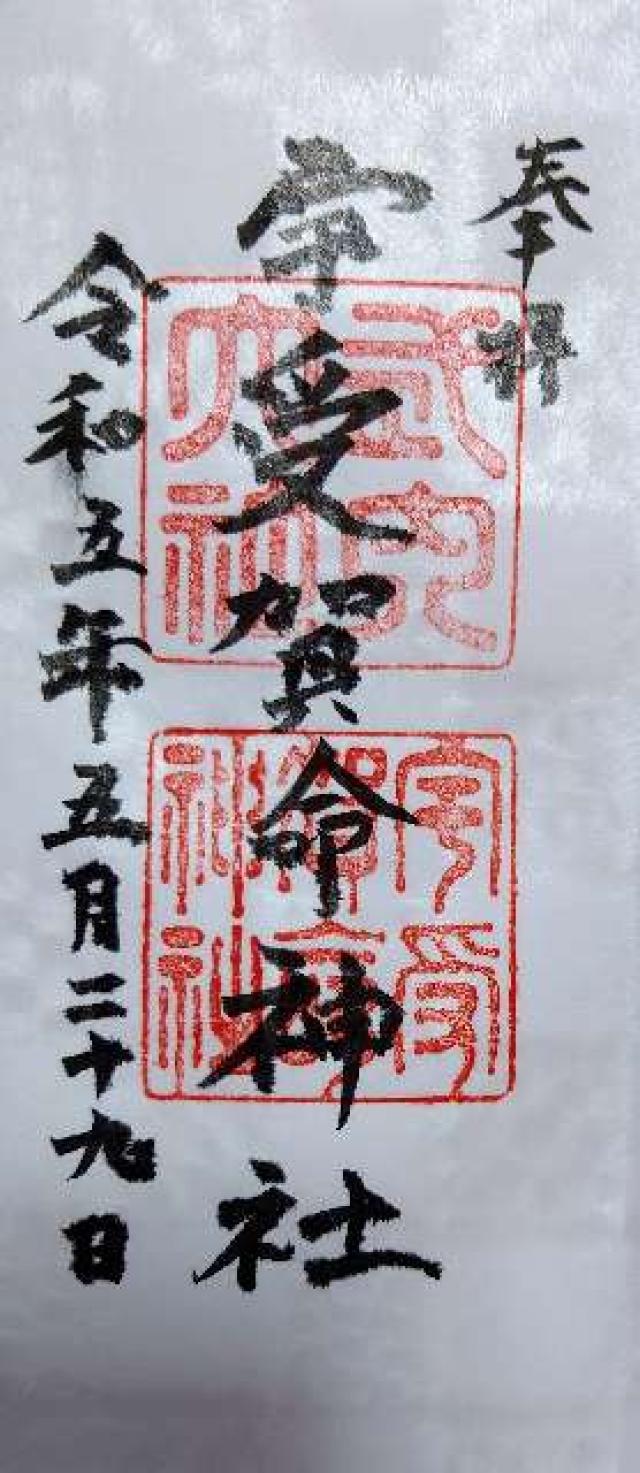 奉拝
宇受賀命神社
令和五年五月二十九日
式内
大社
宇受
賀命
神社